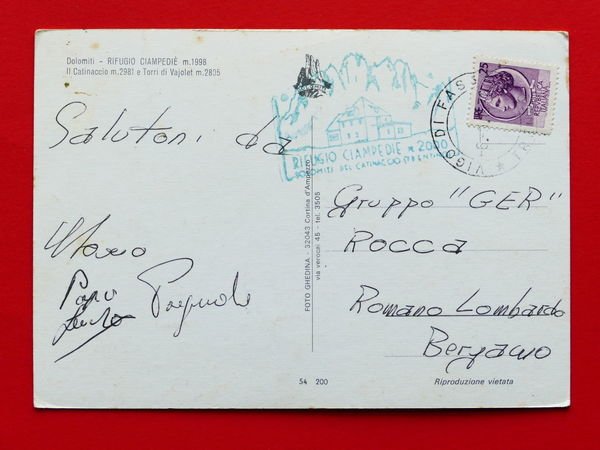 Dolomiti - RIFUGIO CIAMPEDIÈ m.1998
Il Catinaccio m.2981 e Torri di Vajolet m.2805
Salutoni da
Mario
RIFUGIO CIAMPEDIE m. 2000
DOLOMITI DEL CATINACCIO (TRENTINO)
25
VIGO DI FAS
Gruppo "GER"
ROCCA
Romano Lombardo
Bergamo
FOTO GHEDINA - 32043 Cortina d'Ampezzo
via verocai 45 - tel. 3505
54 200
Riproduzione vietata